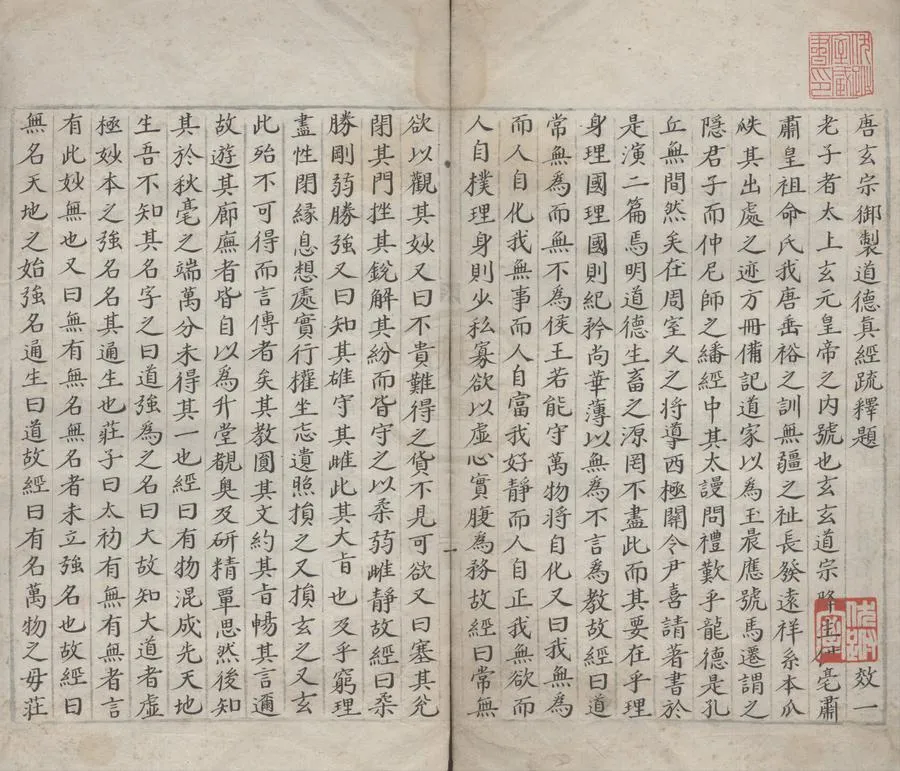 唐玄宗御製道德真經疏釋題 效一
老子者太上玄元皇帝之内號也玄玄道宗降生伊亳肅
肅皇祖命氏我唐垂裕之訓無疆之祉長發遠祥系本瓜
紩其出處之迹方冊備記道家以為玉晨應號馬遷謂之
隱君子而仲尼師之繙經中其太謾問禮歎乎龍德是孔
丘無間然矣在周室久之將導西極關令尹喜請著書於
是演二篇焉明道德生畜之源罔不盡此而其要在乎理
身理國理國則紀矜尚華薄以無為不言為教故經曰道
常無為而無不為侯王若能守萬物將自化又曰我無為
而人自化我無事而人自富我好靜而人自正我無欲而
人自樸理身則少私寡欲以虛心實腹為務故經曰常無
欲以觀其妙又曰不貴難得之貨不見可欲又曰塞其兊
閉其門挫其銳解其紛而皆守之以柔弱雌靜故經曰柔
勝剛弱勝強又曰知其雄守其雌此其大旨也及乎窮理
盡性閉緣息想處實行權坐忘遺照損之又損玄之又玄
此殆不可得而言傳者矣其教圓其文約其旨暢其言邇
故遊其廊廡者皆自以為升堂覩奧及研精覃思然後知
其於秋毫之端萬分未得其一也經曰有物混成先天地
生吾不知其名字之曰道強為之名曰大故知大道者虛
極妙本之強名名其通生也莊子曰太初有無有無者言
有此妙無也又曰無有無名無名者未立強名也故經曰
無名天地之始強名通生曰道故經曰有名萬物之母莊